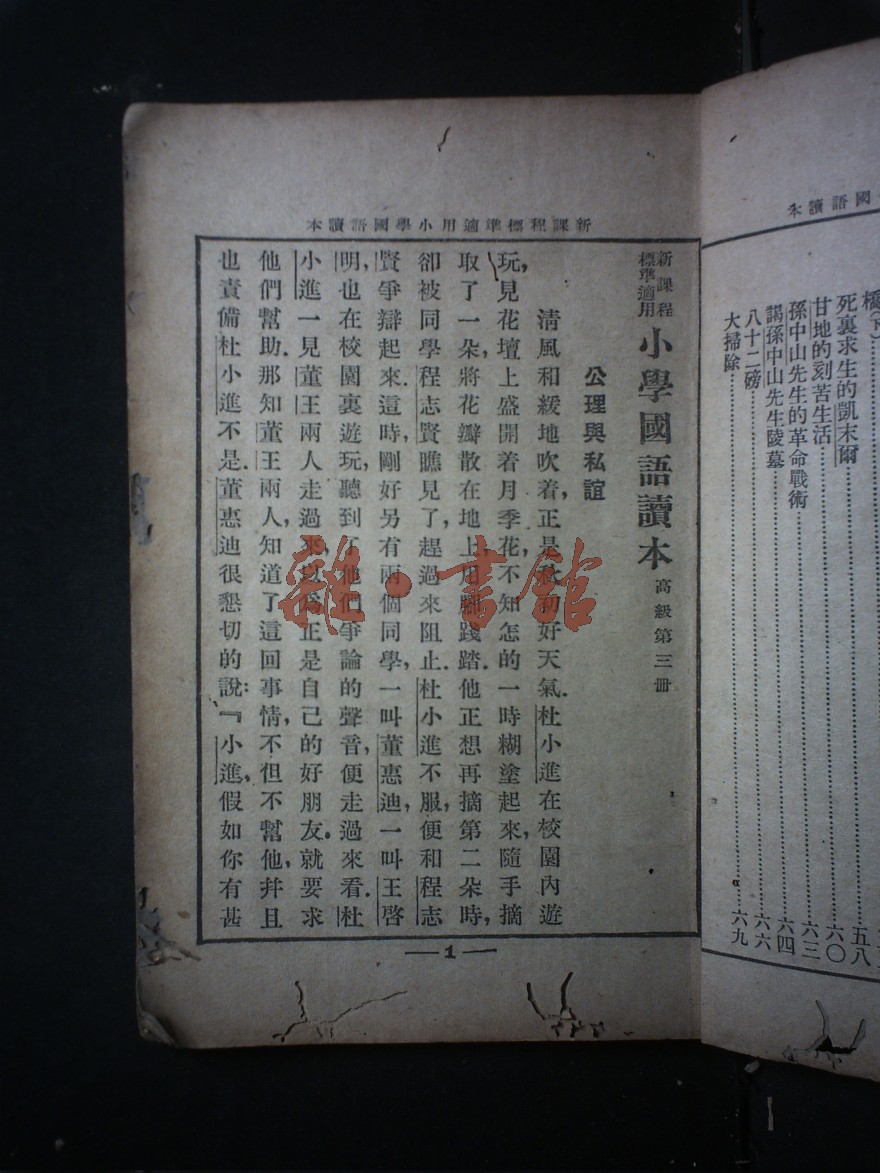 國語讀本
橋(下)
死裏求生的凱末爾……五八
甘地的刻苦生活……六〇
孫中山先生的革命戰術……六三
謁孫中山先生陵墓……六四
八十二磅……六六
大掃除……六九
新課程標準適用小學國語讀本
新課程標準適用 小學國語讀本 高級第三册
公理與私誼
清風和緩地吹着,正是秋初好天氣.杜小進在校園內遊
玩,見花壇上盛開着月季花,不知怎的一時糊塗起來,隨手摘
取了一朵,將花瓣散在地上,用腳踐踏.他正想再摘第二朵時,
卻被同學程志賢瞧見了,趕過來阻止.杜小進不服,便和程志
賢爭辯起來.這時,剛好另有兩個同學,一叫董惠迪,一叫王啓
明,也在校園裏遊玩,聽到了他們爭論的聲音,便走過來看.杜
小進一見董王兩人走過來,以爲正是自己的好朋友.就要求
他們幫助.那知董王兩人,知道了這回事情,不但不幫他,幷且
也責備杜小進不是.董惠迪很懇切的說:『小進,假如你有甚
—1—
雜·書館